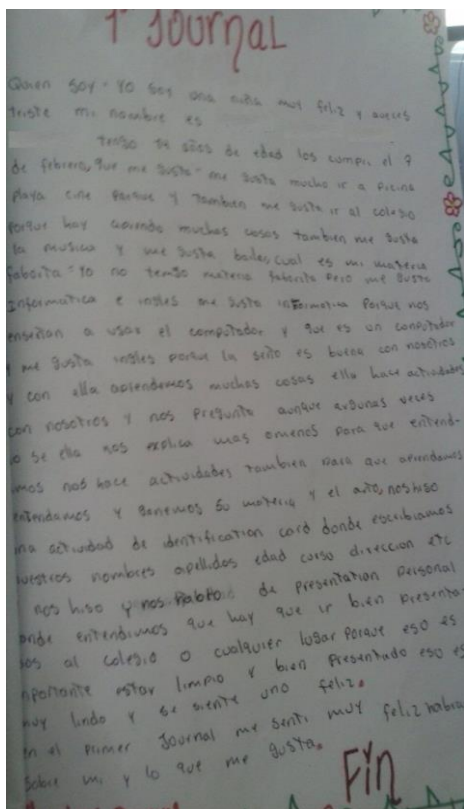 1° JOURNAL
Quien soy- yo soy una niña muy feliz y aveces
triste mi nombre es
tengo 14 años de edad los cumpli el 9
de febrero, que me gusta- me gusta mucho ir a picina
playa cine parque y tambien me gusta ir al colegio
porque hay aprendo muchas cosas tambien me gusta
la musica y me gusta bailes, cual es mi materia
faborita- yo no tengo materia faborita pero me gusta
informatica e ingles me gusta informatica porque nos
enseñan a usar el computador y que es un computador
y me gusta ingles porque la seño es buena con nosotros
y con ella aprendemos muchas cosas ella hace actividades
con nosotros y nos pregunta aunque argunas veces
no se ella nos explica mas omenos para que entend-
amos nos hace actividades tambien para que aprendamos
entendamos y ganemos su materia y el año, nos hiso
una actividad de identification card donde escribiamos
nuestros nombres apellidos edad curso direccion etc
nos hiso y nos de presentation personal
donde entendimos que hay que ir bien presenta-
dos al colegio o cualquier lugar porque eso es
importante estar limpio y bien presentado eso es
muy lindo y se siente uno feliz.
en el primer Journal me senti muy feliz hablar
sobre mi y lo que me gusta.
Fin